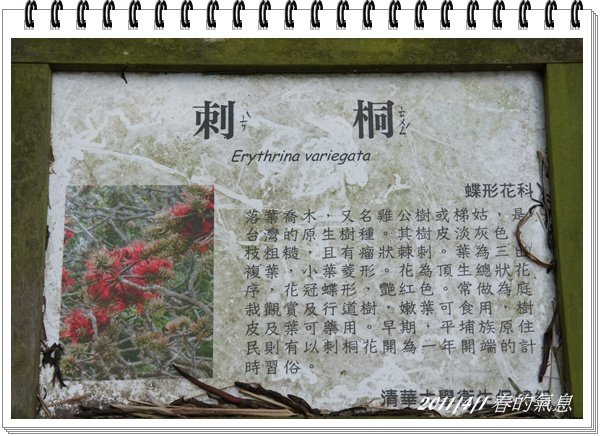 刺 ㄘˋ 桐 ㄊㄨㄥˊ
Erythrina variegata
蝶形花科
落葉喬木，又名雞公樹或梯姑，是
台灣的原生樹種。其樹皮淡灰色，
枝粗糙，且有瘤狀棘刺。葉為三出
複葉，小葉菱形。花為頂生總狀花
序，花冠蝶形，艷紅色。常做為庭
栽觀賞及行道樹，嫩葉可食用，樹
皮及葉可藥用。早期，平埔族原住
民則有以刺桐花開為一年開端的計
時習俗。
清華大學衛生保健組
2011/4/1 春的氣息